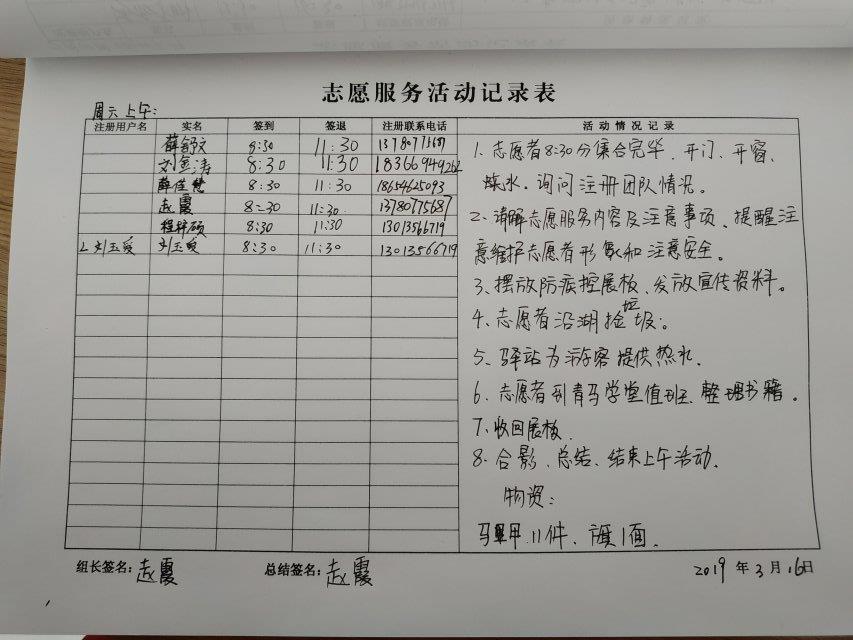 志愿服务活动记录表
周六上午:
注册用户名 实名 签到 签退 注册联系电话 活动情况记录
薛舒文 8:30 11:30 13780775687
刘金涛 8:30 11:30
薛佳慧 8:30 11:30 18654625093
赵霞 8:30 11:30 13780775687
8:30 11:30 13013566719
刘玉受 刘玉受 8:30 11:30 13013566719
1、志愿者8:30分集合完毕、开门、开窗、
烧水、询问注册团队情况。
2、讲解志愿服务内容及注意事项、提醒注
意维护志愿者形象和注意安全。
3、摆放防疾控展板、发放宣传资料。
4、志愿者沿湖捡垃圾。
5、驿站为游客提供热水.
6、志愿者到青马学堂值班、整理书籍。
7、收回展板.
8、合影、总结、结束上午活动.
物资:
马甲11件、旗1面.
组长签名:赵霞 总结签名:赵霞 2019年3月16日